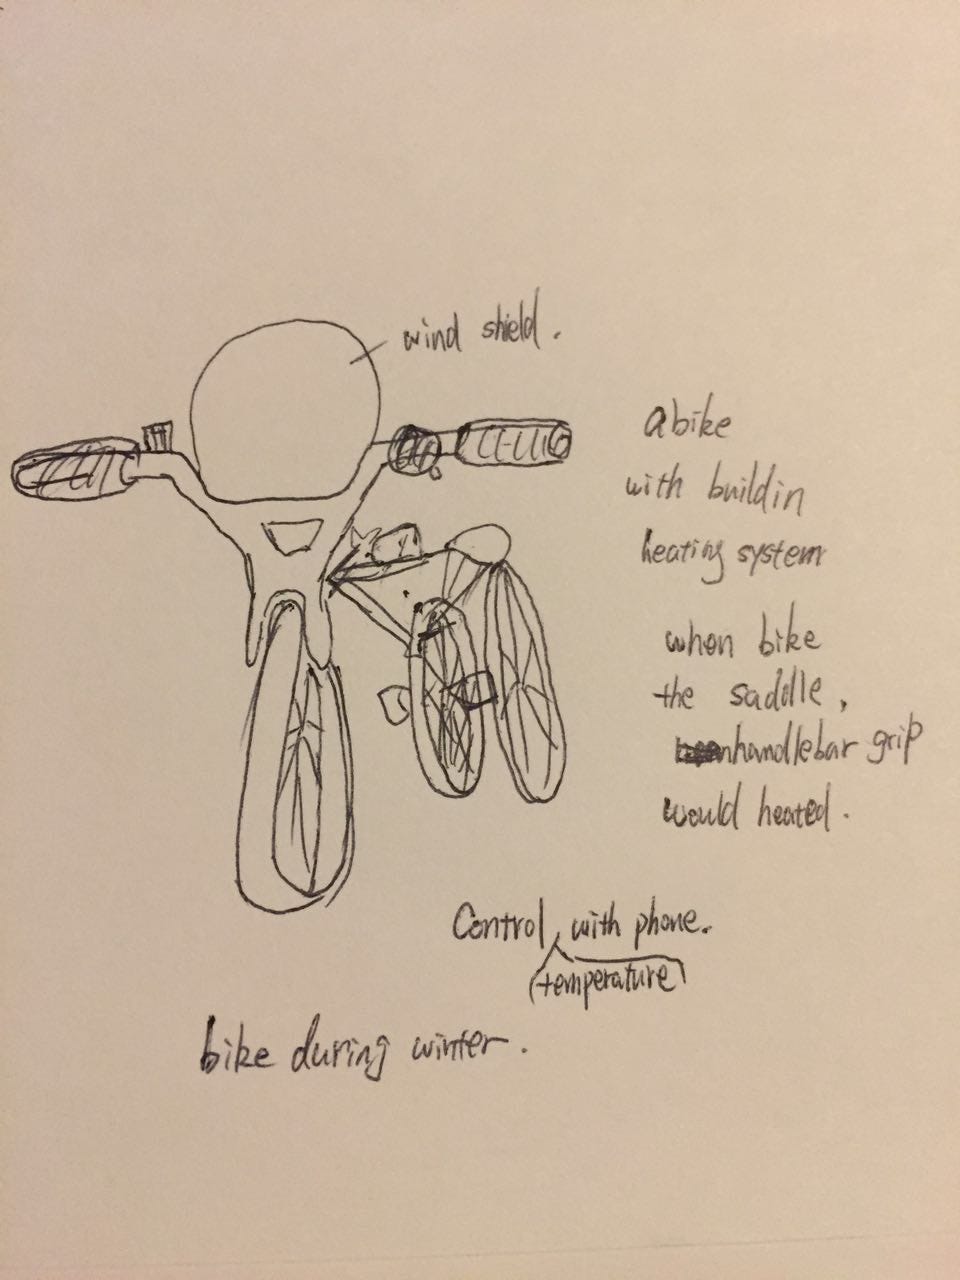 wind shield.
a bike
with buildin
heating system
when bike
the saddle,
handlebar grip
would heated.
Control with phone.
temperature
bike during winter.